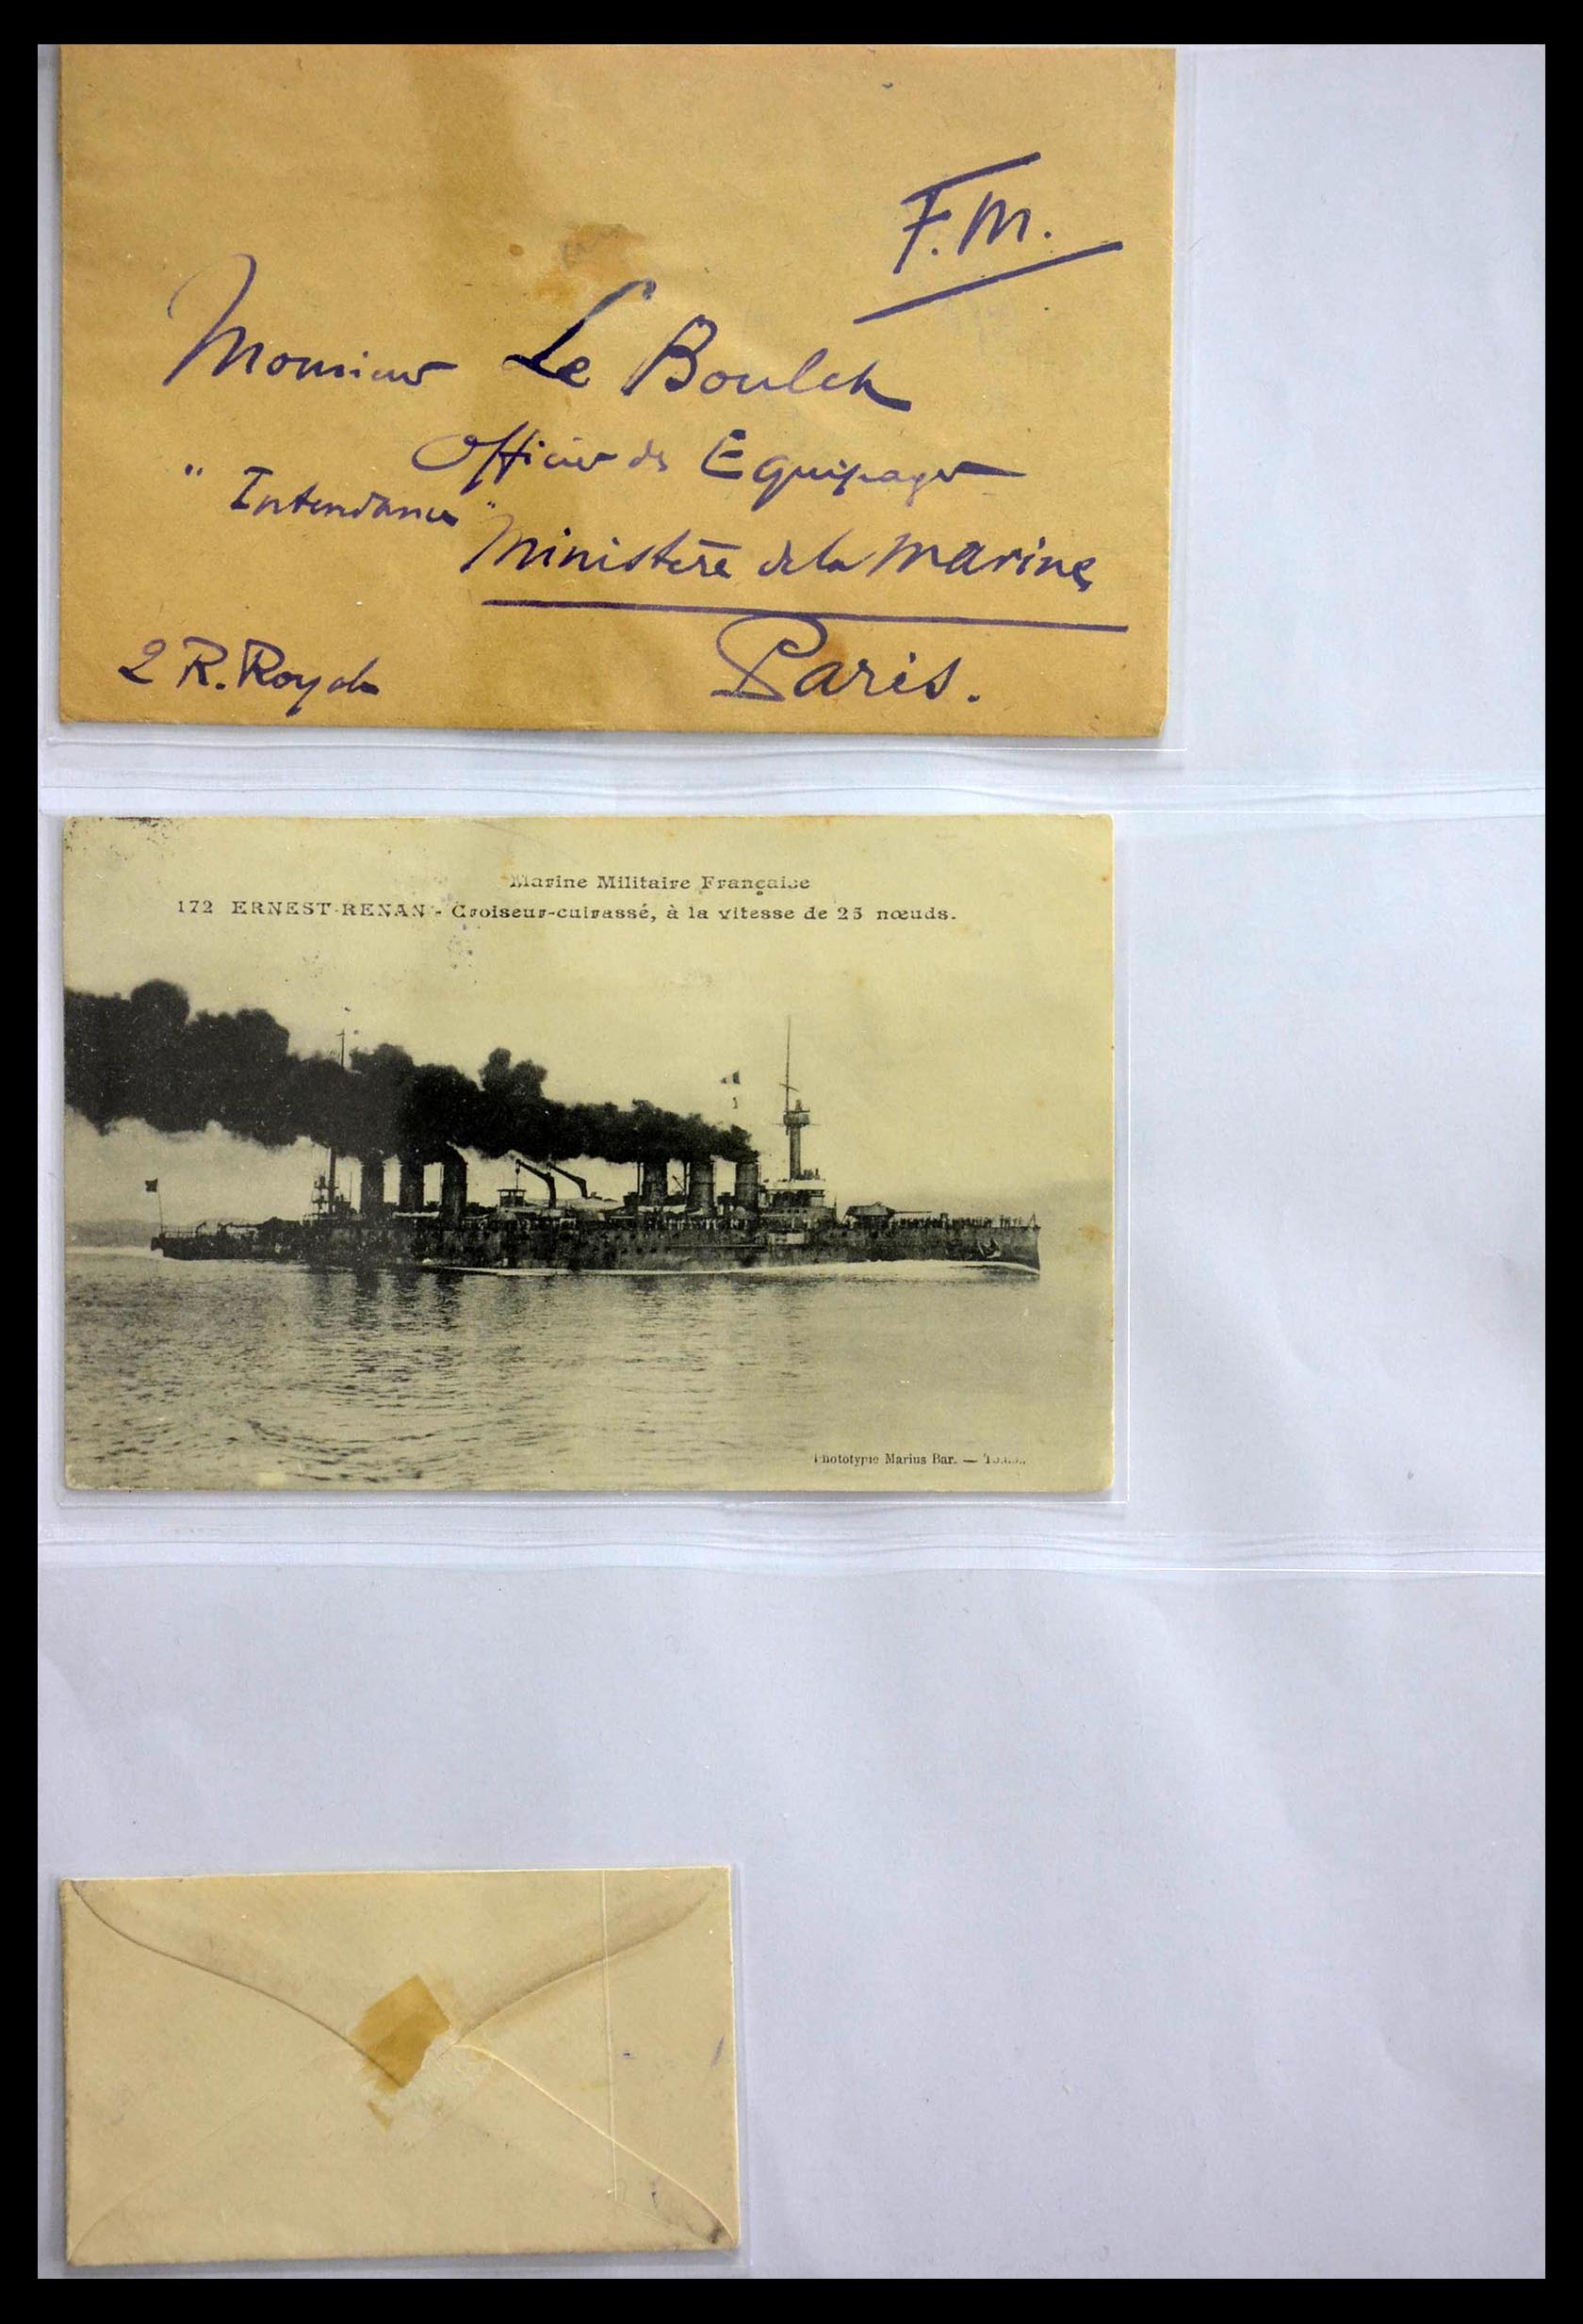 F.M.
Monsieur Le Boulch
Officier des Equipages
"Intendance"
Ministère de la Marine
2 R. Royale
Paris.
Marine Militaire Française
172 ERNEST-RENAN - Croiseur-cuirassé, à la vitesse de 25 nœuds.
Phototypie Marius Bar. — Toulon